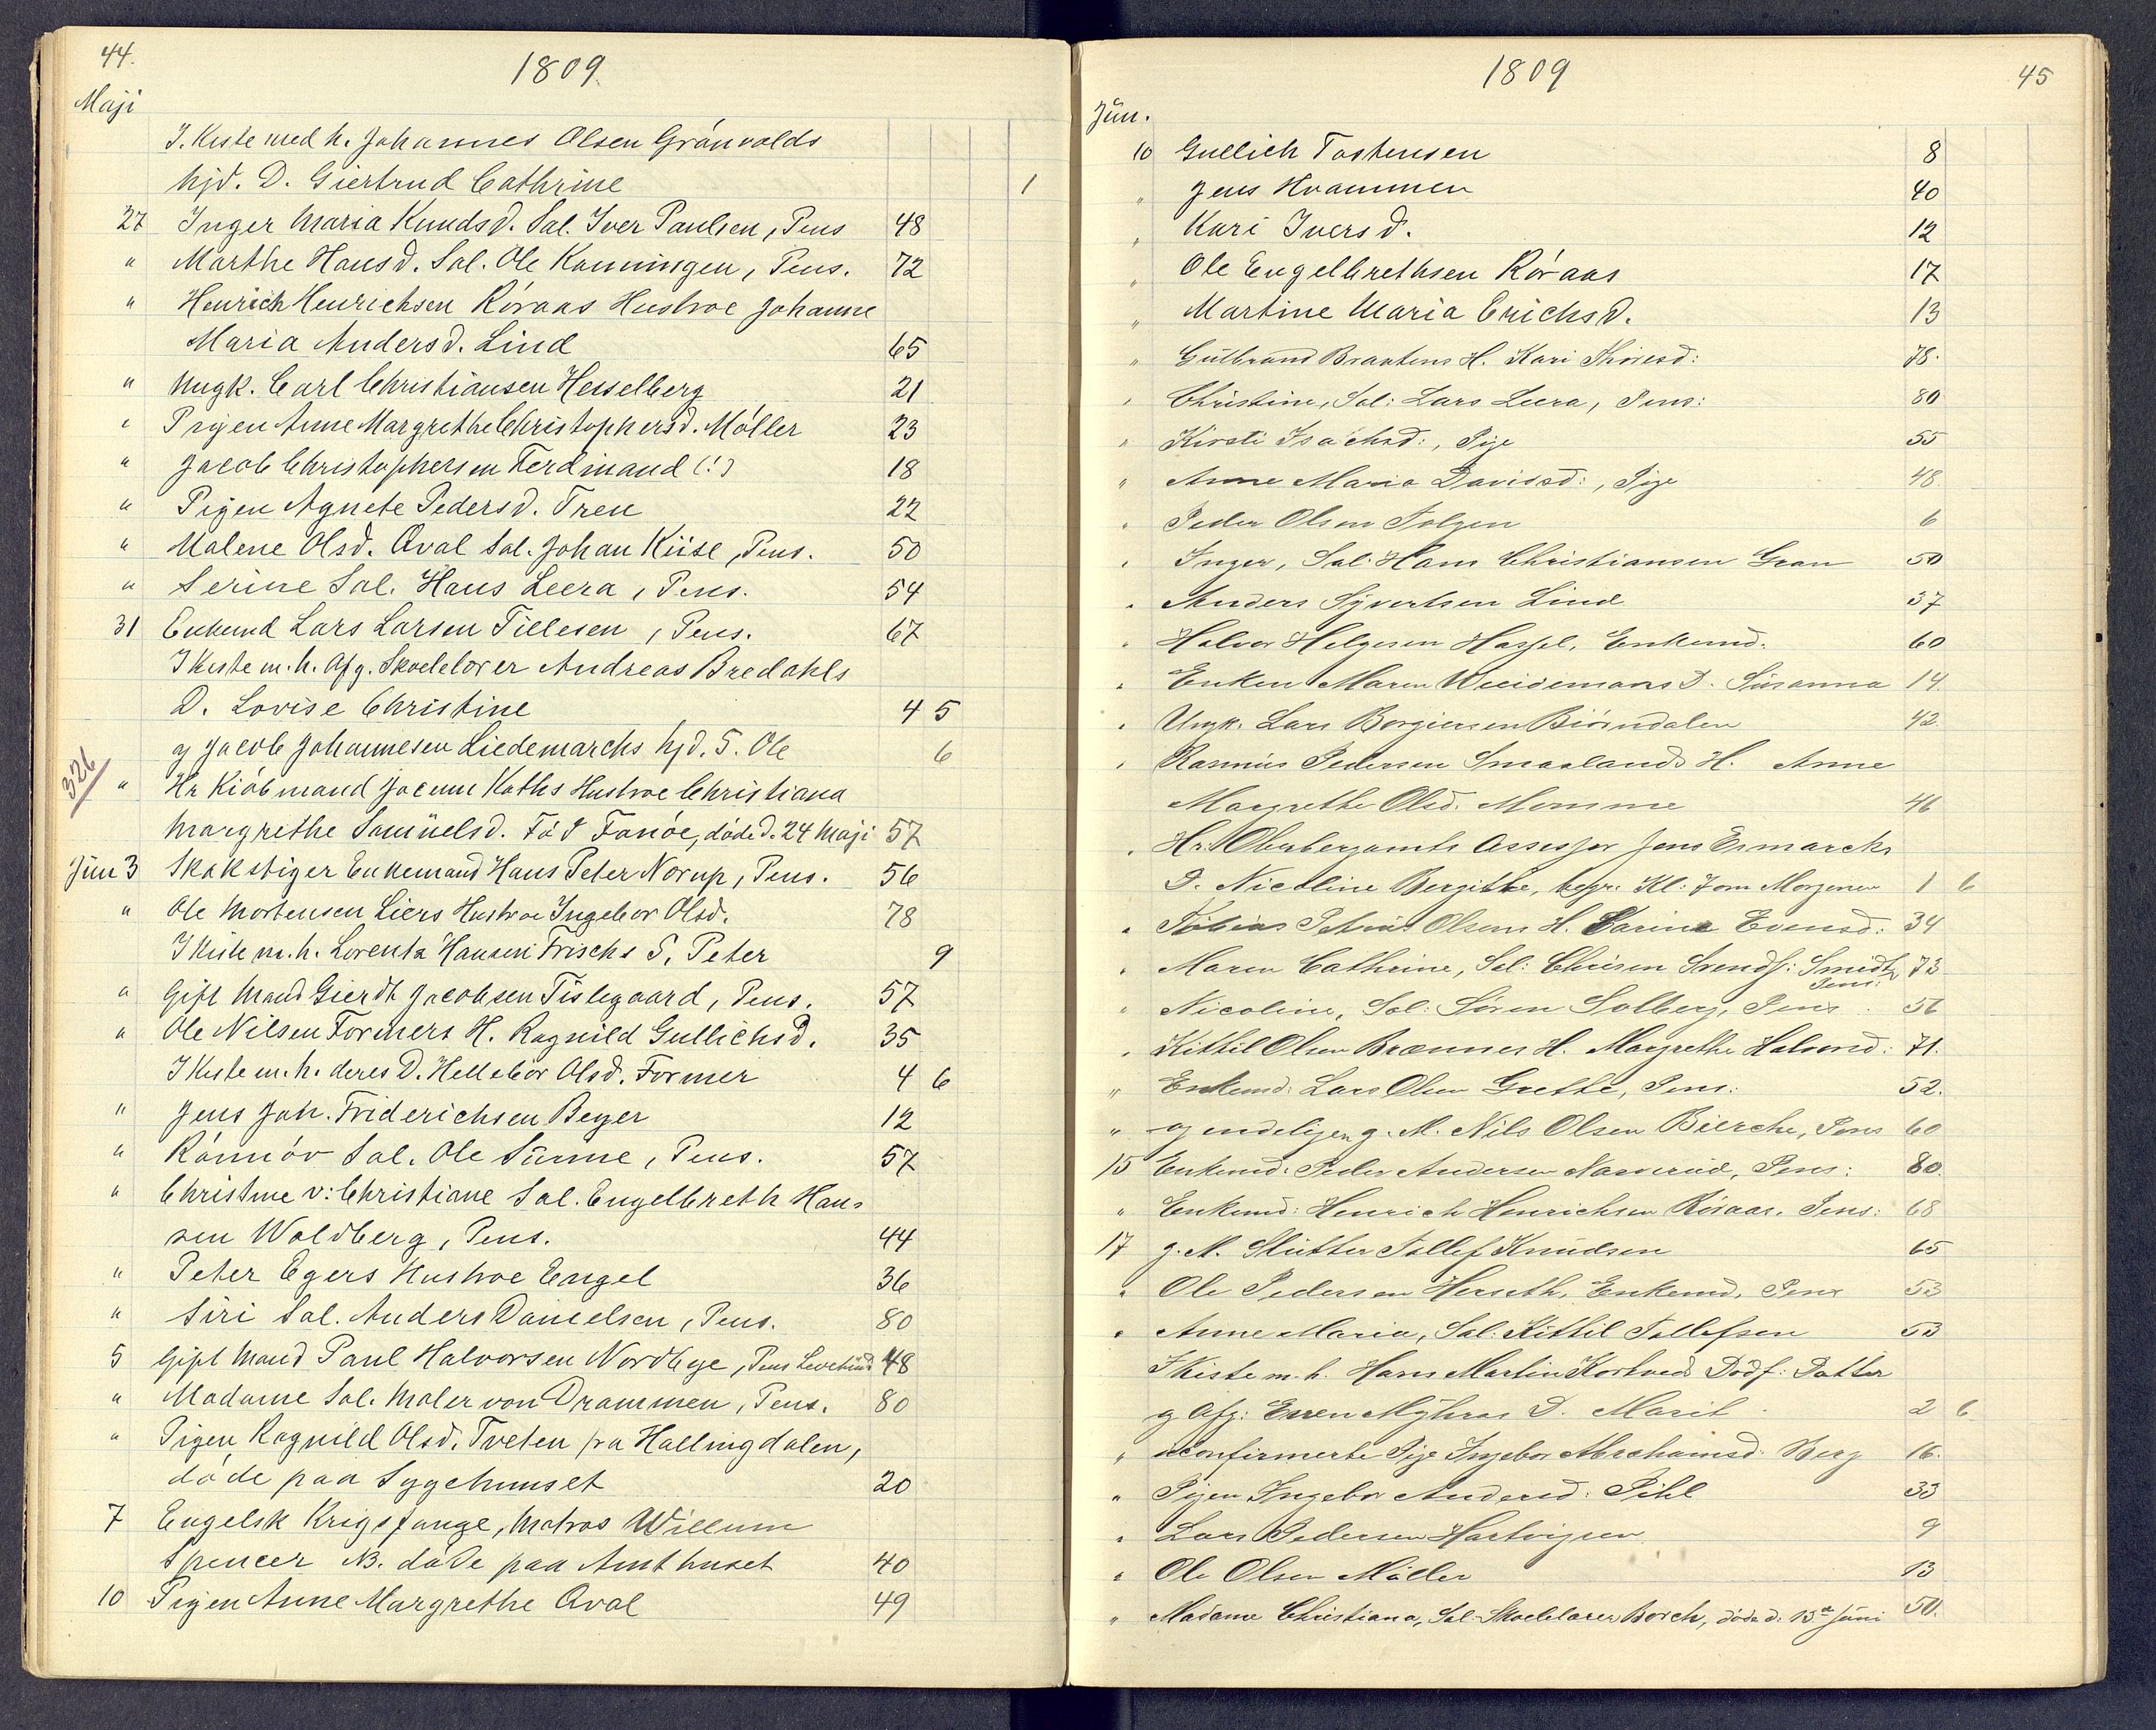 44.
1809.
Maji
I. Kiste med h. Johannes Olsen Grönvolds
hjd. D. Giertrud Cathrine 1
27 Inger Maria Knudsd. Sal. Iver Paulsen, Pens 48
" Marthe Hansd. Sal. Ole Kanningen, Pens. 72
" Henrich Henrichsen Röraas Hustroe Johanne
Maria Andersd. Lind 65
" Ungk. Carl Christiansen Hesselberg 21
" Pigen Anne Margrethe Christophersd. Möller 23
" Jacob Christophersen Ferdinand (!) 18
" Pigen Agnete Pedersd. Tren 22
" Malene Olsd. Qval Sal. Johan Kiise, Pens. 50
" Serine Sal. Hans Leera, Pens. 54
31 Enkemd Lars Larsen Tillesen, Pens. 67
I Kiste m. h. Afg. Skoelelærer Andreas Bredahls
D. Lovise Christine 4 5
og Jacob Johannesen Liedemarchs hjd. S. Ole 6
326
" Hr Kiöbmand Jocum Koths Hustroe Christiana
Margrethe Samuelsd. Fö d Fanöe, döde d. 24 Maji 57
Jun 3 Skakstiger Enkemand Hans Peter Norup, Pens. 56
" Ole Mortensen Liers Hustroe Ingebor Olsd. 78
I Kiste m. h. Lorentz Hansen Frischs S. Peter 9
" Gift Mand Gierdt Jacobsen Tislegaard, Pens. 57
" Ole Nilsen Formers H. Ragnild Gullichsd. 35
I Kiste m. h. deres D. Hellebor Olsd. Former 4 6
" Jens Joh. Friderichsen Beyer 12
" Rönnöv Sal. Ole Surme, Pens. 57
" Christine v: Christiane Sal. Engelbreth Han-
sen Woldberg, Pens. 44
" Peter Egers Hustroe Engel 36
" Siri Sal. Anders Danielsen, Pens. 80
5 Gift Mand Paul Halvorsen Nordbye, Pens 48
" Madame Sal. Maler von Drammen, Pens. 80
" Pigen Ragnild Olsd. Tveten fra Hallingdalen,
döde paa Sygehuuset 20
7 Engelsk Krigsfange, Matros Willum
Spencer NB. döde paa Amthuset 40
10 Pigen Anne Margrethe Qval 49
1809
45
Jun.
10 Gullich Tostensen 8
" Jens Hvammen 40
" Kari Iversd. 12
" Ole Engelbrethsen Röraas 17
" Martine Maria Erichsd. 13
" Gulbrand Braatens H. Kari Thoresd: 78.
" Christine, Sal: Lars Leera, Pens: 80
" Kirsti Isachsd:, Pige 55
" Anne Maria Davidsd:, Pige 48
" Peder Olsen Tolgen 6
" Inger, Sal: Hans Christiansen Gran 50
" Anders Syvertsen Lind 37
" Halvor Helgesen Hassel, Enkemd. 60
" Enken Maren Wieidemans D. Susanna 14
" Ungk. Lars Borgiersen Biörndalen 42
" Rasmus Pedersen Smaalands H. Anne
Margrethe Olsd. Momme 46
" Hr. Oberbergamts Assessor Jens Esmarchs
D. Nicoline Bergithe, begr. Kl: 7 om Morgenen 1 6
" Tobias Olsens H. Karine Evensd: 34
" Maren Cathrine, Sal: Svends: Smidt, Pens: 73
" Nicoline, Sal: Sören Solberg, Pens 56
" Kittil Olsen Brænnes H. Margrethe Halvord: 71.
" Enkemd: Lars Olsen Grette, Pens: 52.
" og endeligen g. M. Nils Olsen Bierche, Pens 60
15 Enkemd: Peder Andersen Narverud, Pens: 80.
" Enkemd: Henrich Henrichsen Röraas, Pens: 68
17 g. M. Slutter Tollef Knudsen 65
" Ole Pedersen Herseth, Enkemd, Pens 53
" Anne Maria, Sal: Kittil Tollefsen 53
I Kiste m. h. Hans Martin Dödf: Datter
og Afg: Myhras D. Marit 2 6
" uconfirmerte Pige Ingebor Abrahamsd: Berg 16.
" Pigen Ingebor Andersd: Pihl 33
" Lars Pedersen Hartvigsen 9
" Ole Olsen Möller 13
" Madame Christiana, Sal: Skoelelærer Borch, döde d: 13de Juni 50.